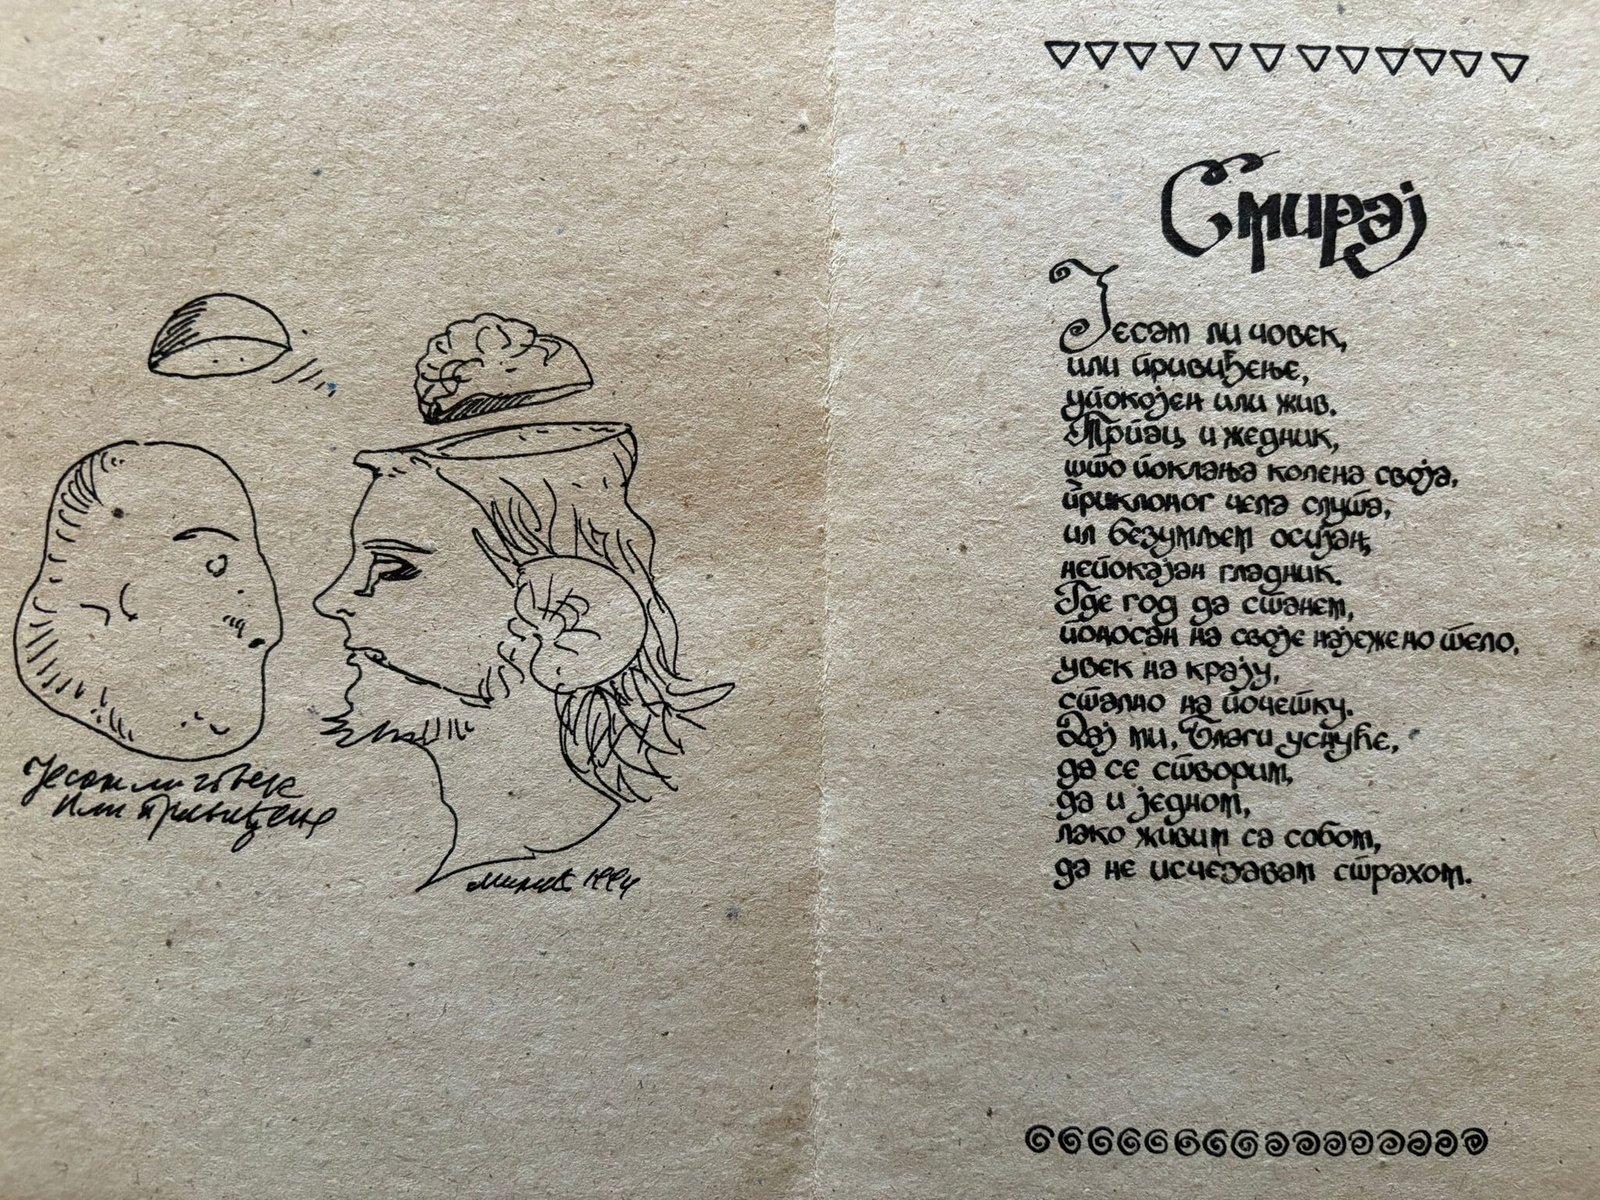 Јесам ли човек
или привиђење
1994
Смирај
Јесам ли човек,
или привиђење,
упокојен или жив.
Трпац и жедник,
што поклања колена своја,
приклоног чела слута,
ил безумљем осијан,
непокајан гладник.
Где год да станем,
поносан на своје најежено тело,
увек на крају,
стално на почетку.
Дај ми, Благи уснуће,
да се створим,
да и једном,
лако живим са собом,
да не исчезавам страхом.